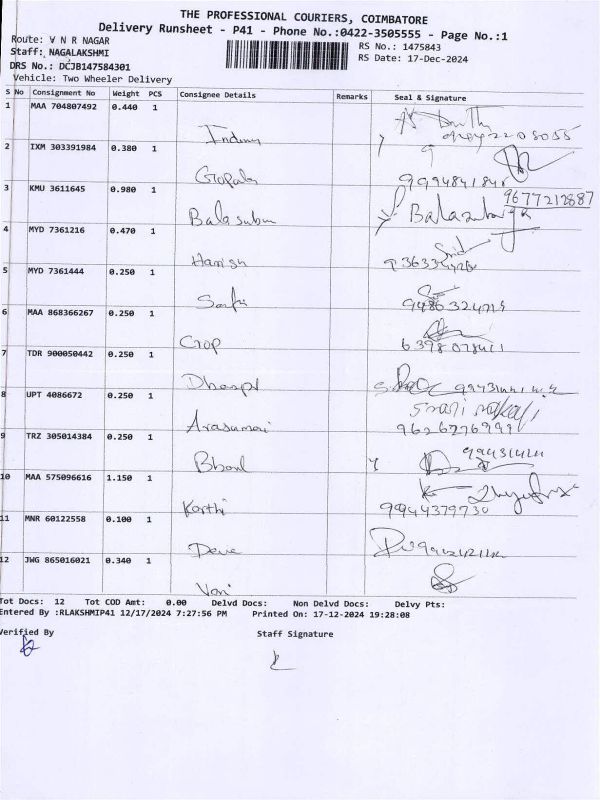 THE PROFESSIONAL COURIERS, COIMBATORE
Delivery Runsheet - P41 - Phone No.:0422-3505555 - Page No.:1
Route: V N R NAGAR
RS No.: 1475843
Staff: NAGALAKSHMI
RS Date: 17-Dec-2024
DRS No.: DCJB147584301
Vehicle: Two Wheeler Delivery
S No Consignment No Weight PCS Consignee Details Remarks Seal & Signature
1 MAA 704807492 0.440 1
2 IXM 303391984 0.380 1
Gopala
3 KMU 3611645 0.980 1
9677212887
Balasubm
4 MYD 7361216 0.470 1
Harish
5 MYD 7361444 0.250 1
9486324719
6 MAA 868366267 0.250 1
Gop
7 TDR 900050442 0.250 1
Dhanpl
8 UPT 4086672 0.250 1
Arasumai
9626276999
9 TRZ 305014384 0.250 1
10 MAA 575096616 1.150 1
Karthi
9944379730
11 MNR 60122558 0.100 1
Deve
12 JWG 865016021 0.340 1
Vani
Tot Docs: 12 Tot COD Amt: 0.00 Delvd Docs: Non Delvd Docs: Delvy Pts:
Entered By :RLAKSHMIP41 12/17/2024 7:27:56 PM Printed On: 17-12-2024 19:28:08
Verified By
Staff Signature